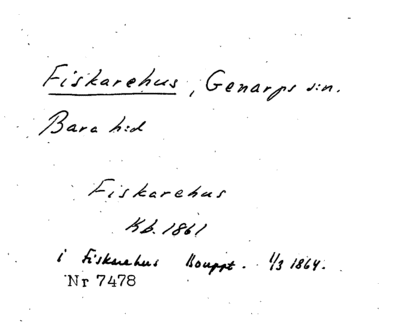 Fiskarehus, Genarps s:n.
Bara h:d
Fiskarehus
Kb. 1861
i Fiskarehus Bouppt. 1/3 1864.
Nr 7478